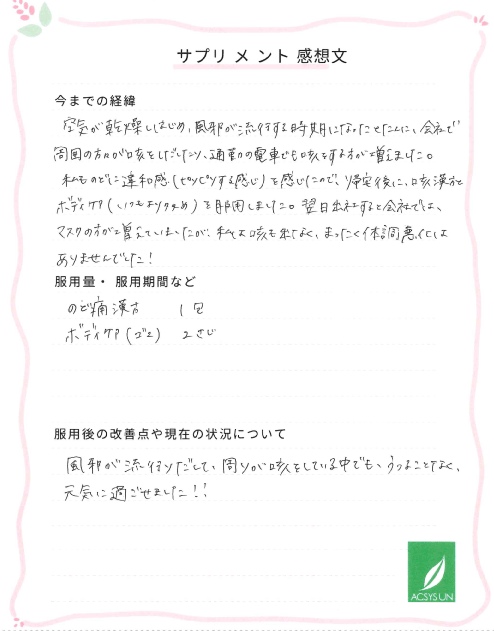 サプリメント 感想文
今までの経緯
空気が乾燥しはじめ、風邪が流行する時期になったとたんに、会社で
周囲の方々が咳をしだしたり、通勤の電車でも咳をする方が増えました。
私ものどに違和感(ピリピリする感じ)を感じたので、帰宅後に、咳漢方と
ボディケア(いつもより多め)を服用しました。翌日出社すると会社では、
マスクの方が増えていましたが、私は咳も出なく、まったく体調悪化は
ありませんでした!
服用量・服用期間など
のど痛漢方 1包
ボディケア(ゴマ) 2さじ
服用後の改善点や現在の状況について
風邪が流行りだして、周りが咳をしている中でも、うつることなく、
元気に過ごせました!!
ACSYSUN